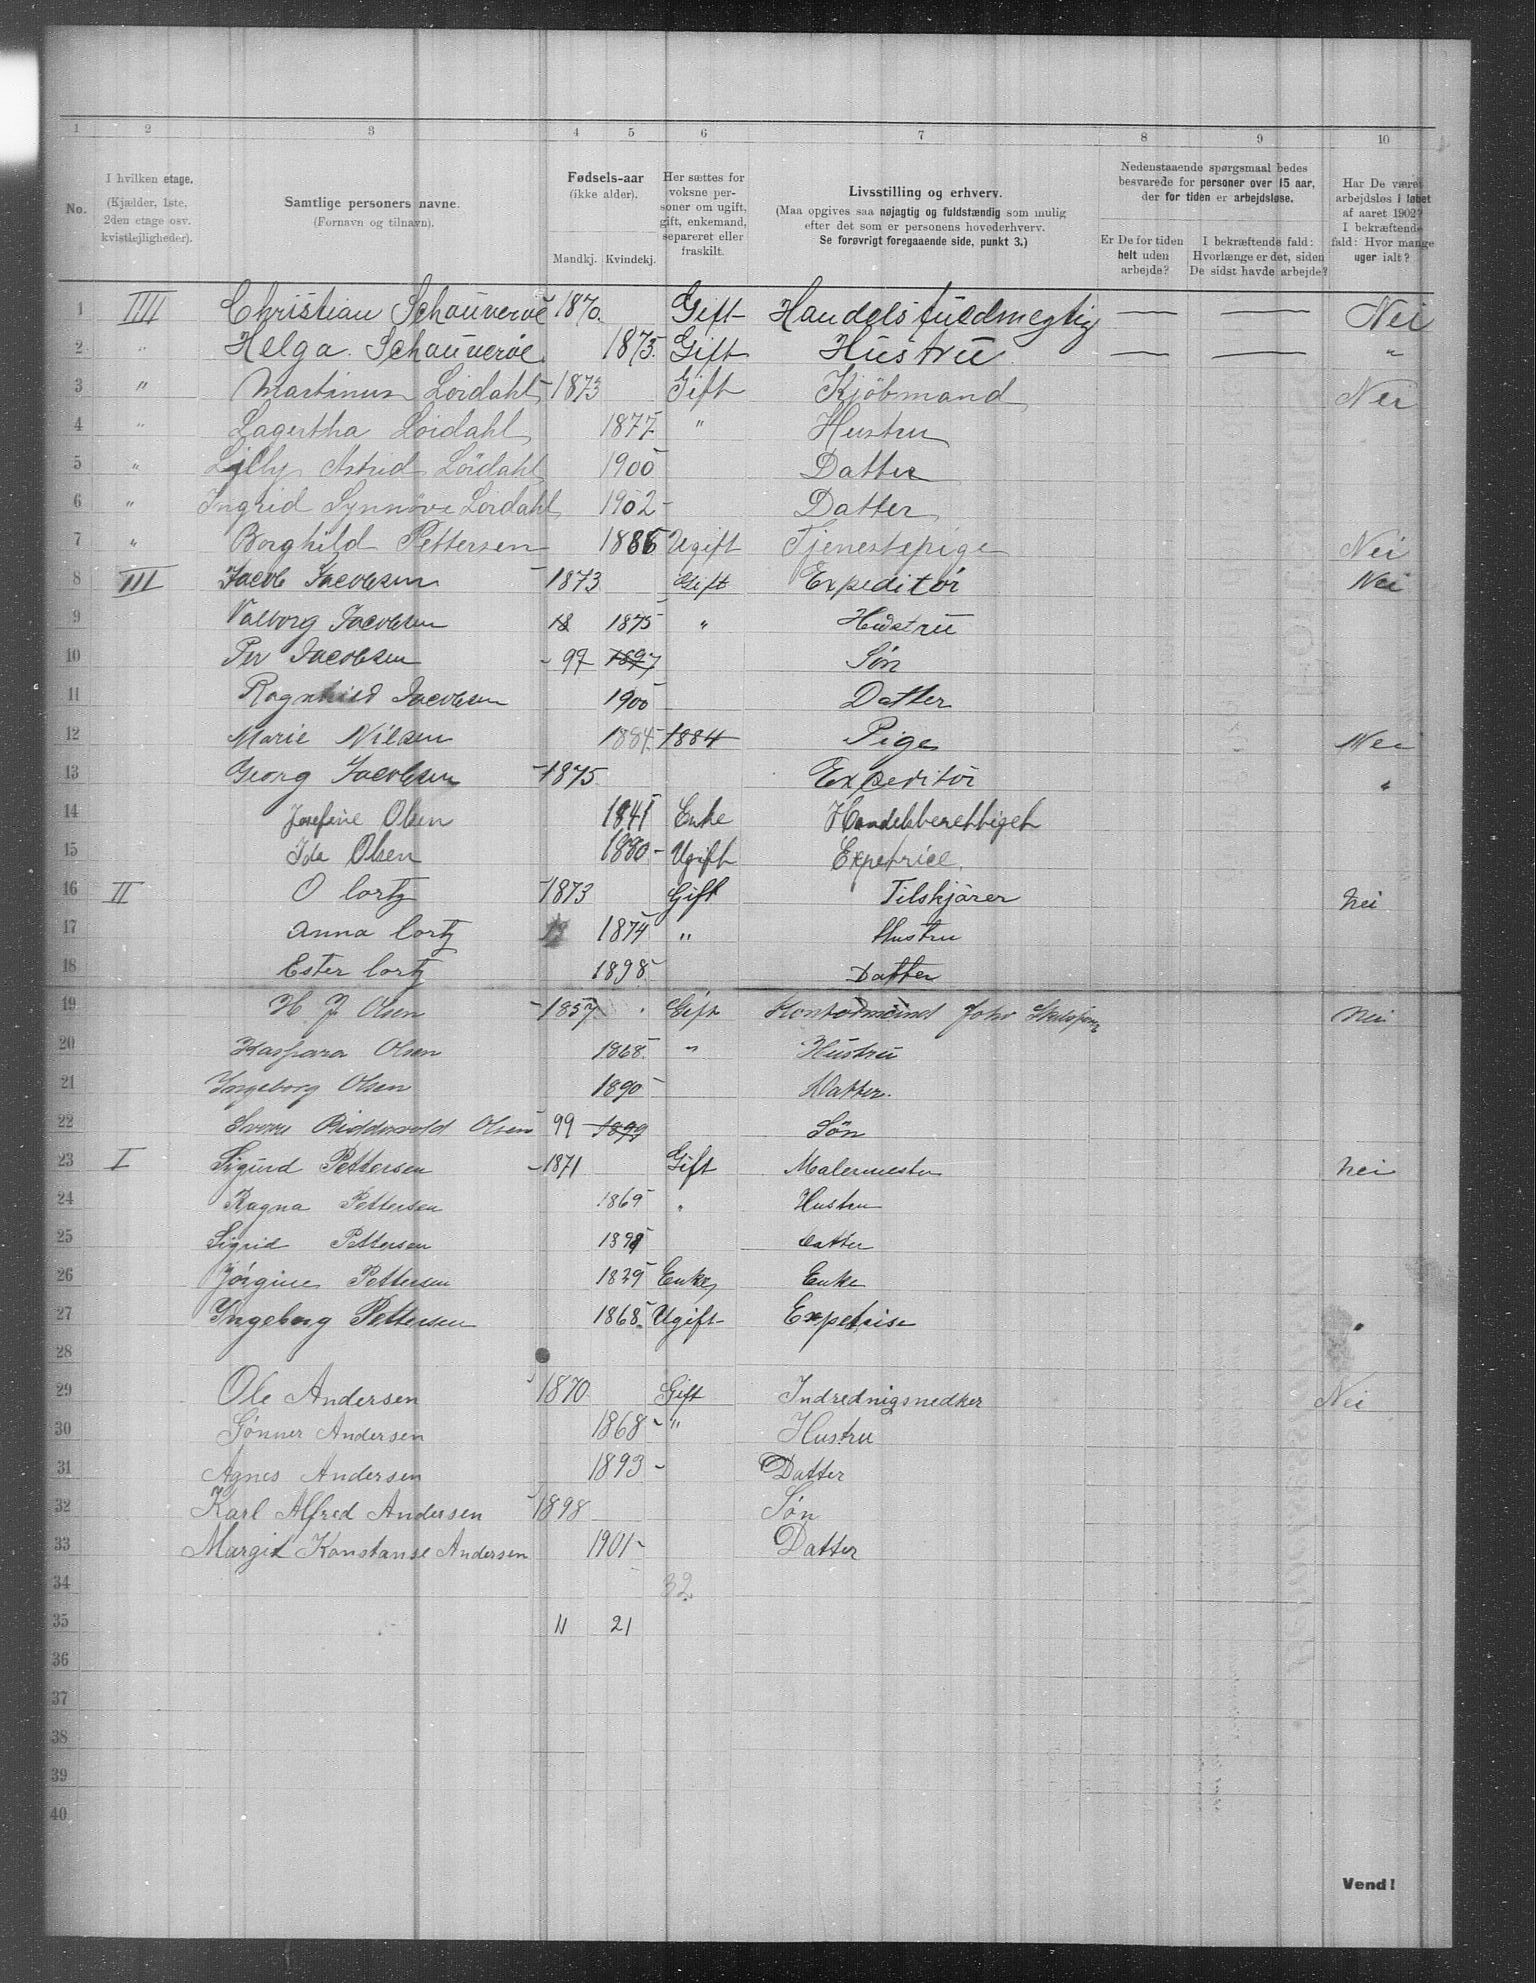 1 2 3 4 5 6 7 8 9 10
No.
I hvilken etage.
(Kjælder, 1ste,
2den etage osv.
kvistlejligheder).
Samtlige personers navne.
(Fornavn og tilnavn).
Fødsels-aar
(ikke alder).
Mandkj. Kvindekj.
Her sættes for
voksne per-
soner om ugift,
gift, enkemand,
separeret eller
fraskilt.
Livsstilling og erhverv.
(Maa opgives saa nøjagtig og fuldstændig som mulig
efter det som er personens hovederhverv.
Se forøvrigt foregaaende side, punkt 3.)
Nedenstaaende spørgsmaal bedes
besvarede for personer over 15 aar,
der for tiden er arbejdsløse.
Er De for tiden
helt uden
arbejde?
I bekræftende fald:
Hvorlænge er det, siden
De sidst havde arbejde?
Har De været
arbejdsløs i løbet
af aaret 1902?
I bekræftende
fald: Hvor mange
uger ialt?
1 IIII Christian Schauveroe 1870. Gift Handelsfuldmegtig — — Nei
2 " Helga Schauveroe 1875. Gift Hustru — — "
3 " Martinus Loidahl 1873 Gift Kjöbmand Nei
4 " Lagertha Loidahl 1877. " Hustru
5 " Lilly Astrid Loidahl 1900 Datter
6 " Ingrid Synnöve Loidahl 1902 - Datter
7 " Borghild Pettersen 1886 Ugift Tjenestepige Nei
8 III Jacob Jacobsen 1873 Gift Expeditör Nei
9 Valborg Jacobsen 18 1875 " Hustru
10 Per Jacobsen - 97 1897 Søn
11 Ragnhild Jacobsen 1900 Datter
12 Marie Nilsen 1884 1884 Pige Nei
13 Georg Jacobsen 1875 Expeditör "
14 Josefine Olsen 1841 Enke Handelsberettiget
15 Ida Olsen 1880 - Ugift Expetrice.
16 II O Cortz 1873 Gift Tilskjärer Nei
17 Anna Cortz 1874 " Hustru
18 Ester Cortz 1898 Datter
19 H J Olsen 1857 Gift Kontormand John Nei
20 Kaspara Olsen 1868 " Hustru
21 Ingeborg Olsen 1890 Datter.
22 Sverre Riddervold Olsen 99 1899 Sön
23 I Sigurd Pettersen 1871 Gift Malermester Nei
24 Ragna Pettersen 1869 " Hustru
25 Sigrid Pettersen 1898 Datter
26 Jörgine Pettersen 1829 Enke Enke
27 Ingeborg Pettersen 1868 Ugift Expetrise "
28
29 Ole Andersen 1870 Gift Indrednigsnedker Nei
30 Gönner Andersen 1868 - " Hustru
31 Agnes Andersen 1893 - Datter
32 Karl Alfred Andersen 1898 Søn
33 Margit Konstanse Andersen 1901 - Datter
34 32
35 11 21
36
37
38
39
40
Vend!